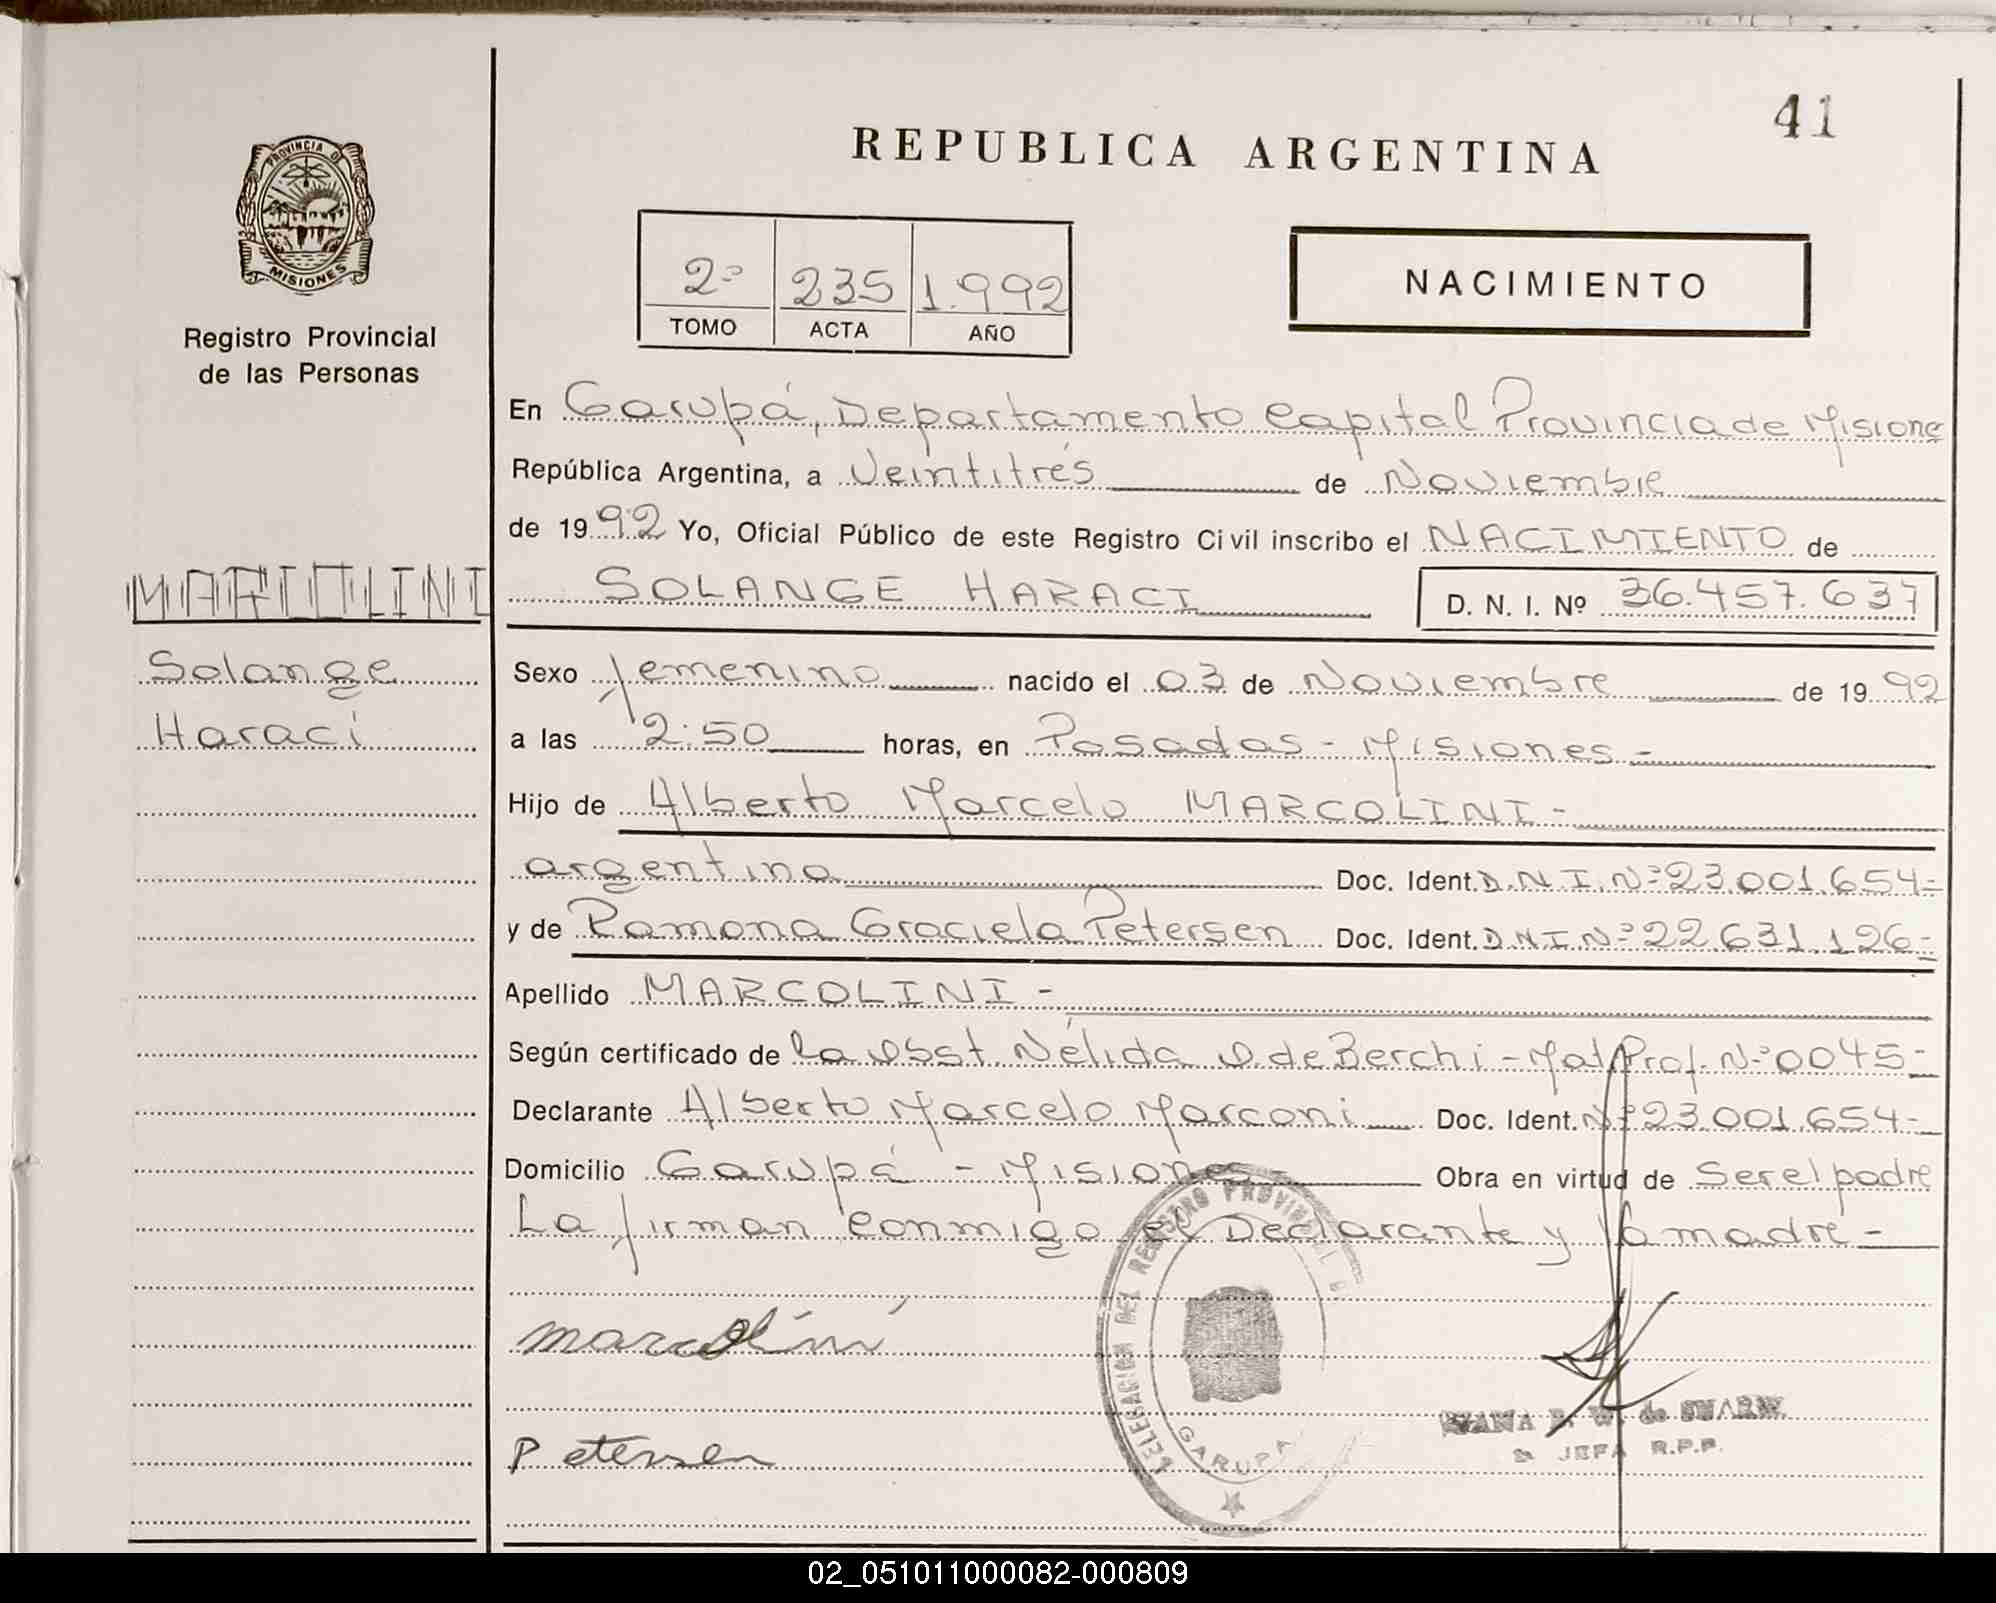 41
REPUBLICA ARGENTINA
PROVINCIA D
MISIONES
Registro Provincial
de las Personas
2º 235 1.992
TOMO ACTA AÑO
NACIMIENTO
En Garupá, Departamento Capital Provincia de Misione
República Argentina, a Veintitrés de Noviembre
de 1992 Yo, Oficial Público de este Registro Civil inscribo el NACIMIENTO de
MARCOLINI
SOLANGE HARACI D. N. I. Nº 36.457.637
Solange
Haraci
Sexo femenino nacido el 03 de Noviembre de 1992
a las 12:50 horas, en Posadas - Misiones -
Hijo de Alberto Marcelo MARCOLINI -
argentino Doc. Ident. D.N.I. Nº 23.001.654 -
y de Ramona Graciela Petersen Doc. Ident. D.N.I Nº 22.631.126 -
Apellido MARCOLINI -
Según certificado de la Obst. Nélida O. de Berchi - Mat. Prof. Nº 0045 -
Declarante Alberto Marcelo Marconi Doc. Ident. Nº 23.001.654 -
Domicilio Garupá - Misiones Obra en virtud de Ser el padre
La firman conmigo el Declarante y la madre -
marcolini
Petersen
DELEGACION DEL REGISTRO PROVINCIAL
GARUPA
de SUAREZ
JEFA R.P.P.
02_051011000082-000809